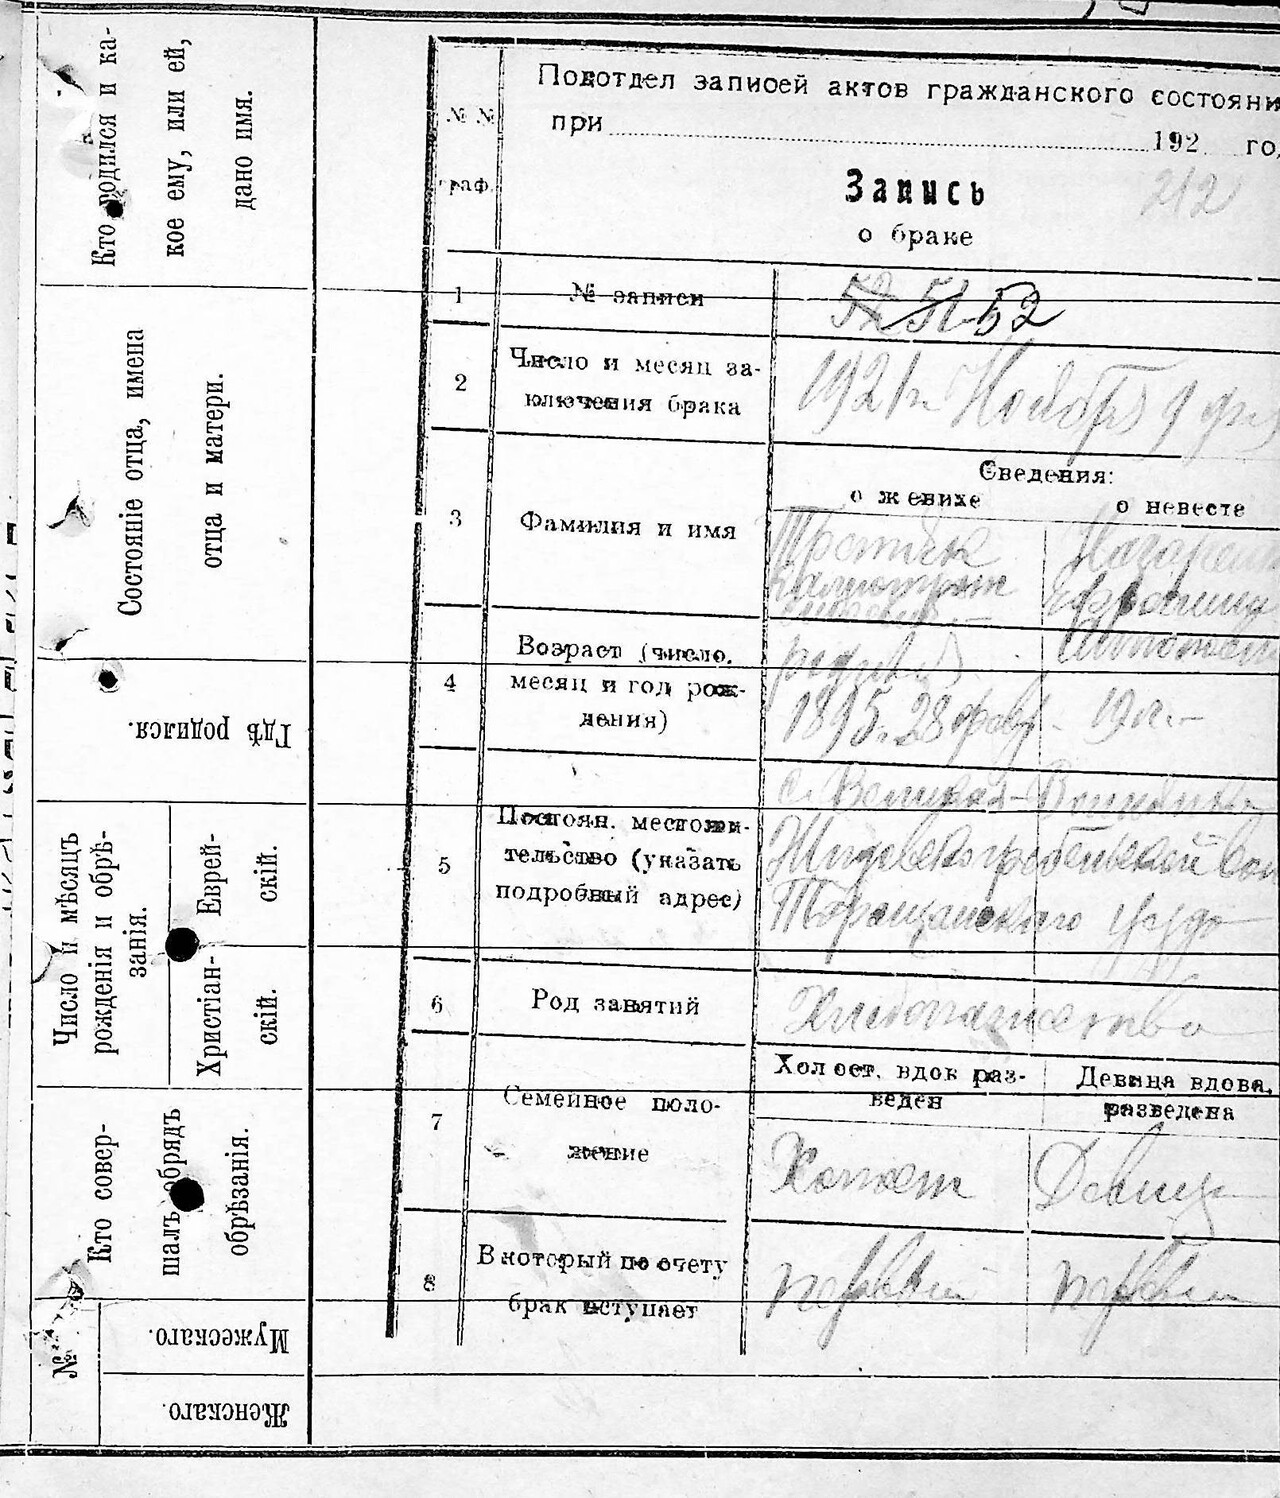 Кто родился и ка-
кое ему, или ей,
дано имя.
Состояніе отца, имена
отца и матери.
Гдѣ родился.
Число и мѣсяцъ
рожденія и обрѣ-
занія.
Еврей-
скій.
Христіан-
скій.
Кто совер-
шалъ обрядъ
обрѣзанія.
№
Мужескаго.
Женскаго.
№ №
граф.
Подотдел записей актов гражданского состояни
при 192 го
Запись
212
о браке
1
№ записи
52 51 52
2
Число и месяц за-
ключения брака
1921 г. Ноября 9 дня
Сведения:
о женихе
о невесте
3
Фамилия и имя
4
Возраст (число,
месяц и год рож-
дения)
1895. 28 февр. 19 л.
5
Постоян. местожи-
тельство (указать
подробный адрес)
с. Великая-
Таращанского уезда
6
Род занятий
7
Семейное поло-
жение
Холост. вдов раз-
веден
Девица вдова,
разведена
Холост
Девица
8
В который по счету
брак вступает
первый
первый